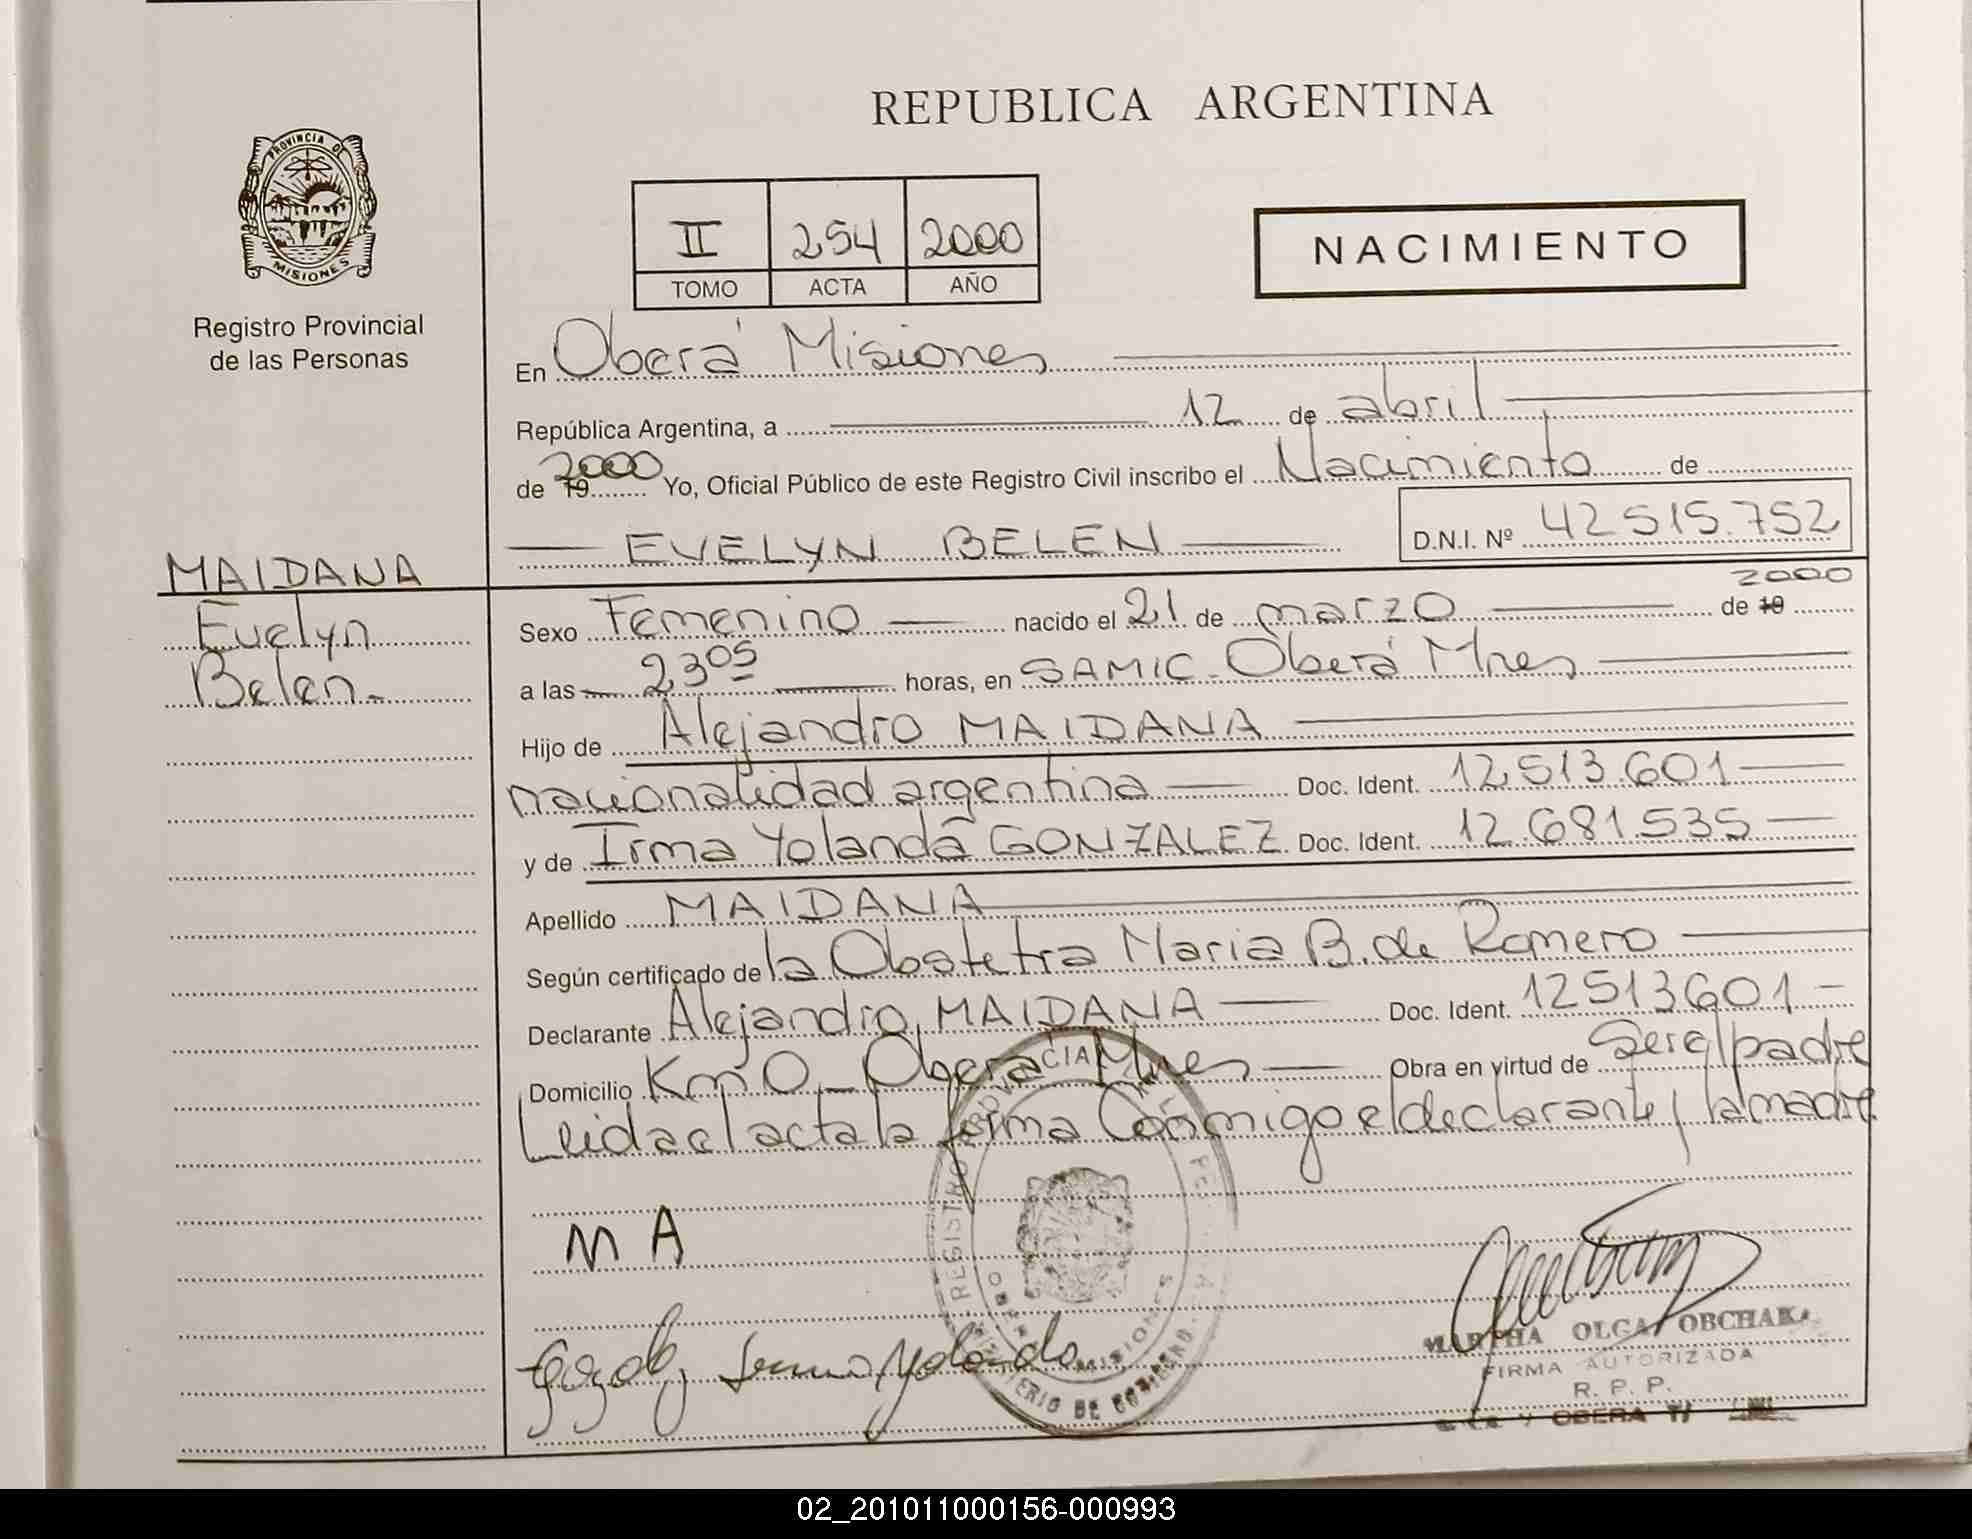 PROVINCIA DE
MISIONES
Registro Provincial
de las Personas
REPUBLICA ARGENTINA
II 254 2000
TOMO ACTA AÑO
NACIMIENTO
En Oberá Misiones
República Argentina, a 12 de abril
de 19 2000 Yo, Oficial Público de este Registro Civil inscribo el Nacimiento de
EVELYN BELEN D.N.I. Nº 42515.752
MAIDANA
Evelyn
Belen.-
Sexo Femenino nacido el 21 de marzo de 19 2000
a las 23 05 horas, en SAMIC - Oberá Mnes
Hijo de Alejandro MAIDANA
nacionalidad argentina Doc. Ident. 12513.601
y de Irma Yolanda GONZALEZ Doc. Ident. 12.681.535
Apellido MAIDANA
Según certificado de la Obstetra Maria B. de Romero
Declarante Alejandro MAIDANA Doc. Ident. 12513601
Domicilio Km 0 - Obera Mnes Obra en virtud de Ser el padre
Leida el acta la firma Conmigo el declarante y la madre
M A
MARTHA OLGA OBCHAK
FIRMA AUTORIZADA
R. P. P.
OBERA
02_201011000156-000993